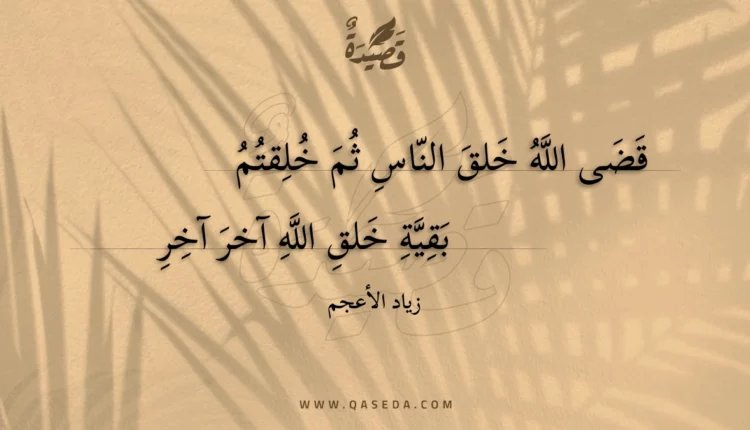 قَصِيدَةٌ
قَضَى اللَّهُ خَلقَ النّاسِ ثُمَ خُلِقتُمُ
بَقِيَّةِ خَلقِ اللَّهِ آخرَ آخِرِ
زياد الأعجم
WWW.QASEDA.COM